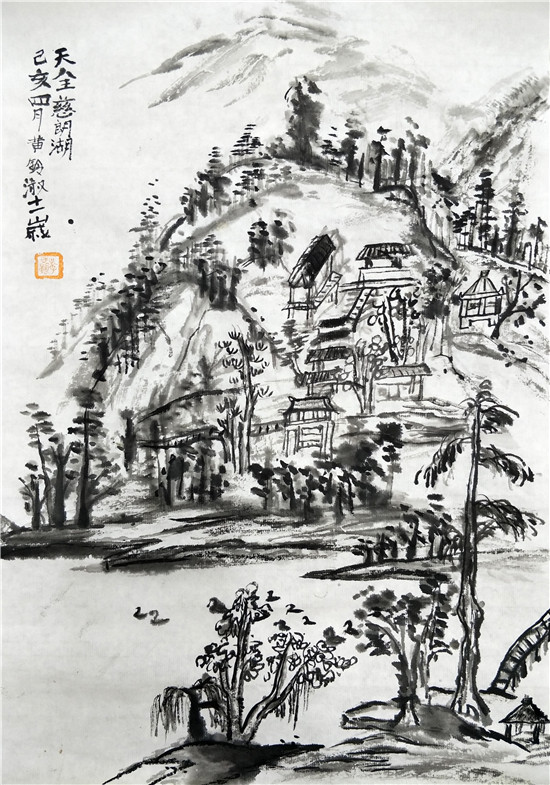 天全慈朗湖
己亥四月黄十一歲